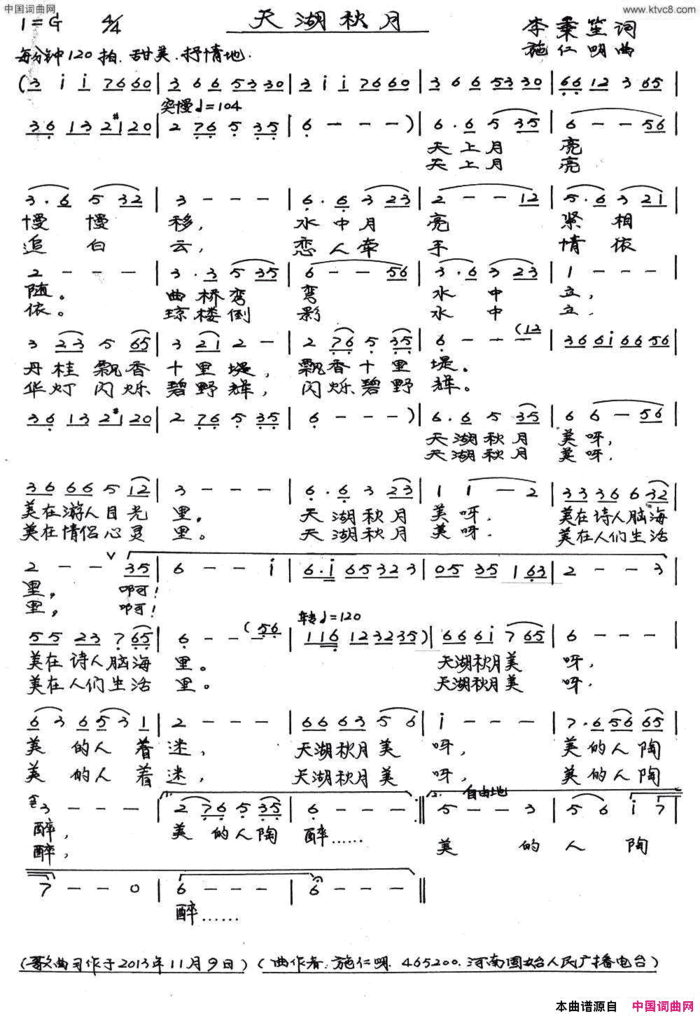 中国词曲网
www.ktvc8.com
1=G 4/4 天湖秋月 李秉笙词
每分钟120拍.甜美.抒情地. 施仁明曲
(3 i i 7660 | 3 6 6 5330 | 3 i i 7660 | 3 6 6 5330 | 66 12 3 65 |
突慢♩=104
36 13 2#120 | 2 76 5 35 | 6 - - - ) | 6·6 5 35 | 6 - - 56 |
天上月 亮
天上月 亮
3·6 5 32 | 3 - - - | 6·6 3 23 | 2 - - 12 | 5·6 3 21 |
慢慢 移, 水中月 亮 紧相
追白 云, 恋人牵 手 情依
2 - - - | 3·3 5 35 | 6 - - 56 | 3·6 3 23 | 1 - - - |
随。 曲桥弯 弯 水中 立,
依。 琼楼倒 影 水中 立.
3 23 5 65 | 3 21 2 - | 2 76 5 35 | 6 - - (12 | 366i 6656 |
丹桂飘香 十里堤, 飘香十里 堤。
华灯闪烁 碧野辉, 闪烁碧野 辉。
36 13 2#120 | 2 76 5 35 | 6 - - -) | 6·6 5 35 | 6 6 - 56 |
天湖秋月 美呀,
天湖秋月 美呀,
36 66 5 12 | 3 - - - | 6·6 3 23 | 1 1 - 2 | 33 36 6 32 |
美在游人目光 里。 天湖秋月 美呀. 美在诗人脑海
美在情侣心灵 里。 天湖秋月 美呀. 美在人们生活
2 - - 35 | 6 - - i | 6·i 65323 | 05 35 1 63 | 2 - - 3 |
里, 啊!
里, 啊!
转♩=120
55 23 7 65 | 6 - - (56 | 116 123235) | 666i 7 65 | 6 - - - |
美在诗人脑海 里。 天湖秋月美 呀,
美在人们生活 里。 天湖秋月美 呀,
6 3 65 3 1 | 2 - - - | 6663 5 6 | i - - - | 7·6 56 65 |
美的人着 迷, 天湖秋月美 呀, 美的人陶
美的人着 迷, 天湖秋月美 呀, 美的人陶
2. 自由地
3 - - - | 2 76 5 35 | 6 - - - :‖ 5 - - 3 | 5 6 i 7 |
醉, 美的人陶 醉…… 美 的人陶
醉,
7 - - 0 | 6 - - - | 6 - - - ‖
醉……
(歌曲习作于2013年11月9日)(曲作者:施仁明.465200.河南固始人民广播电台)
本曲谱源自 中国词曲网